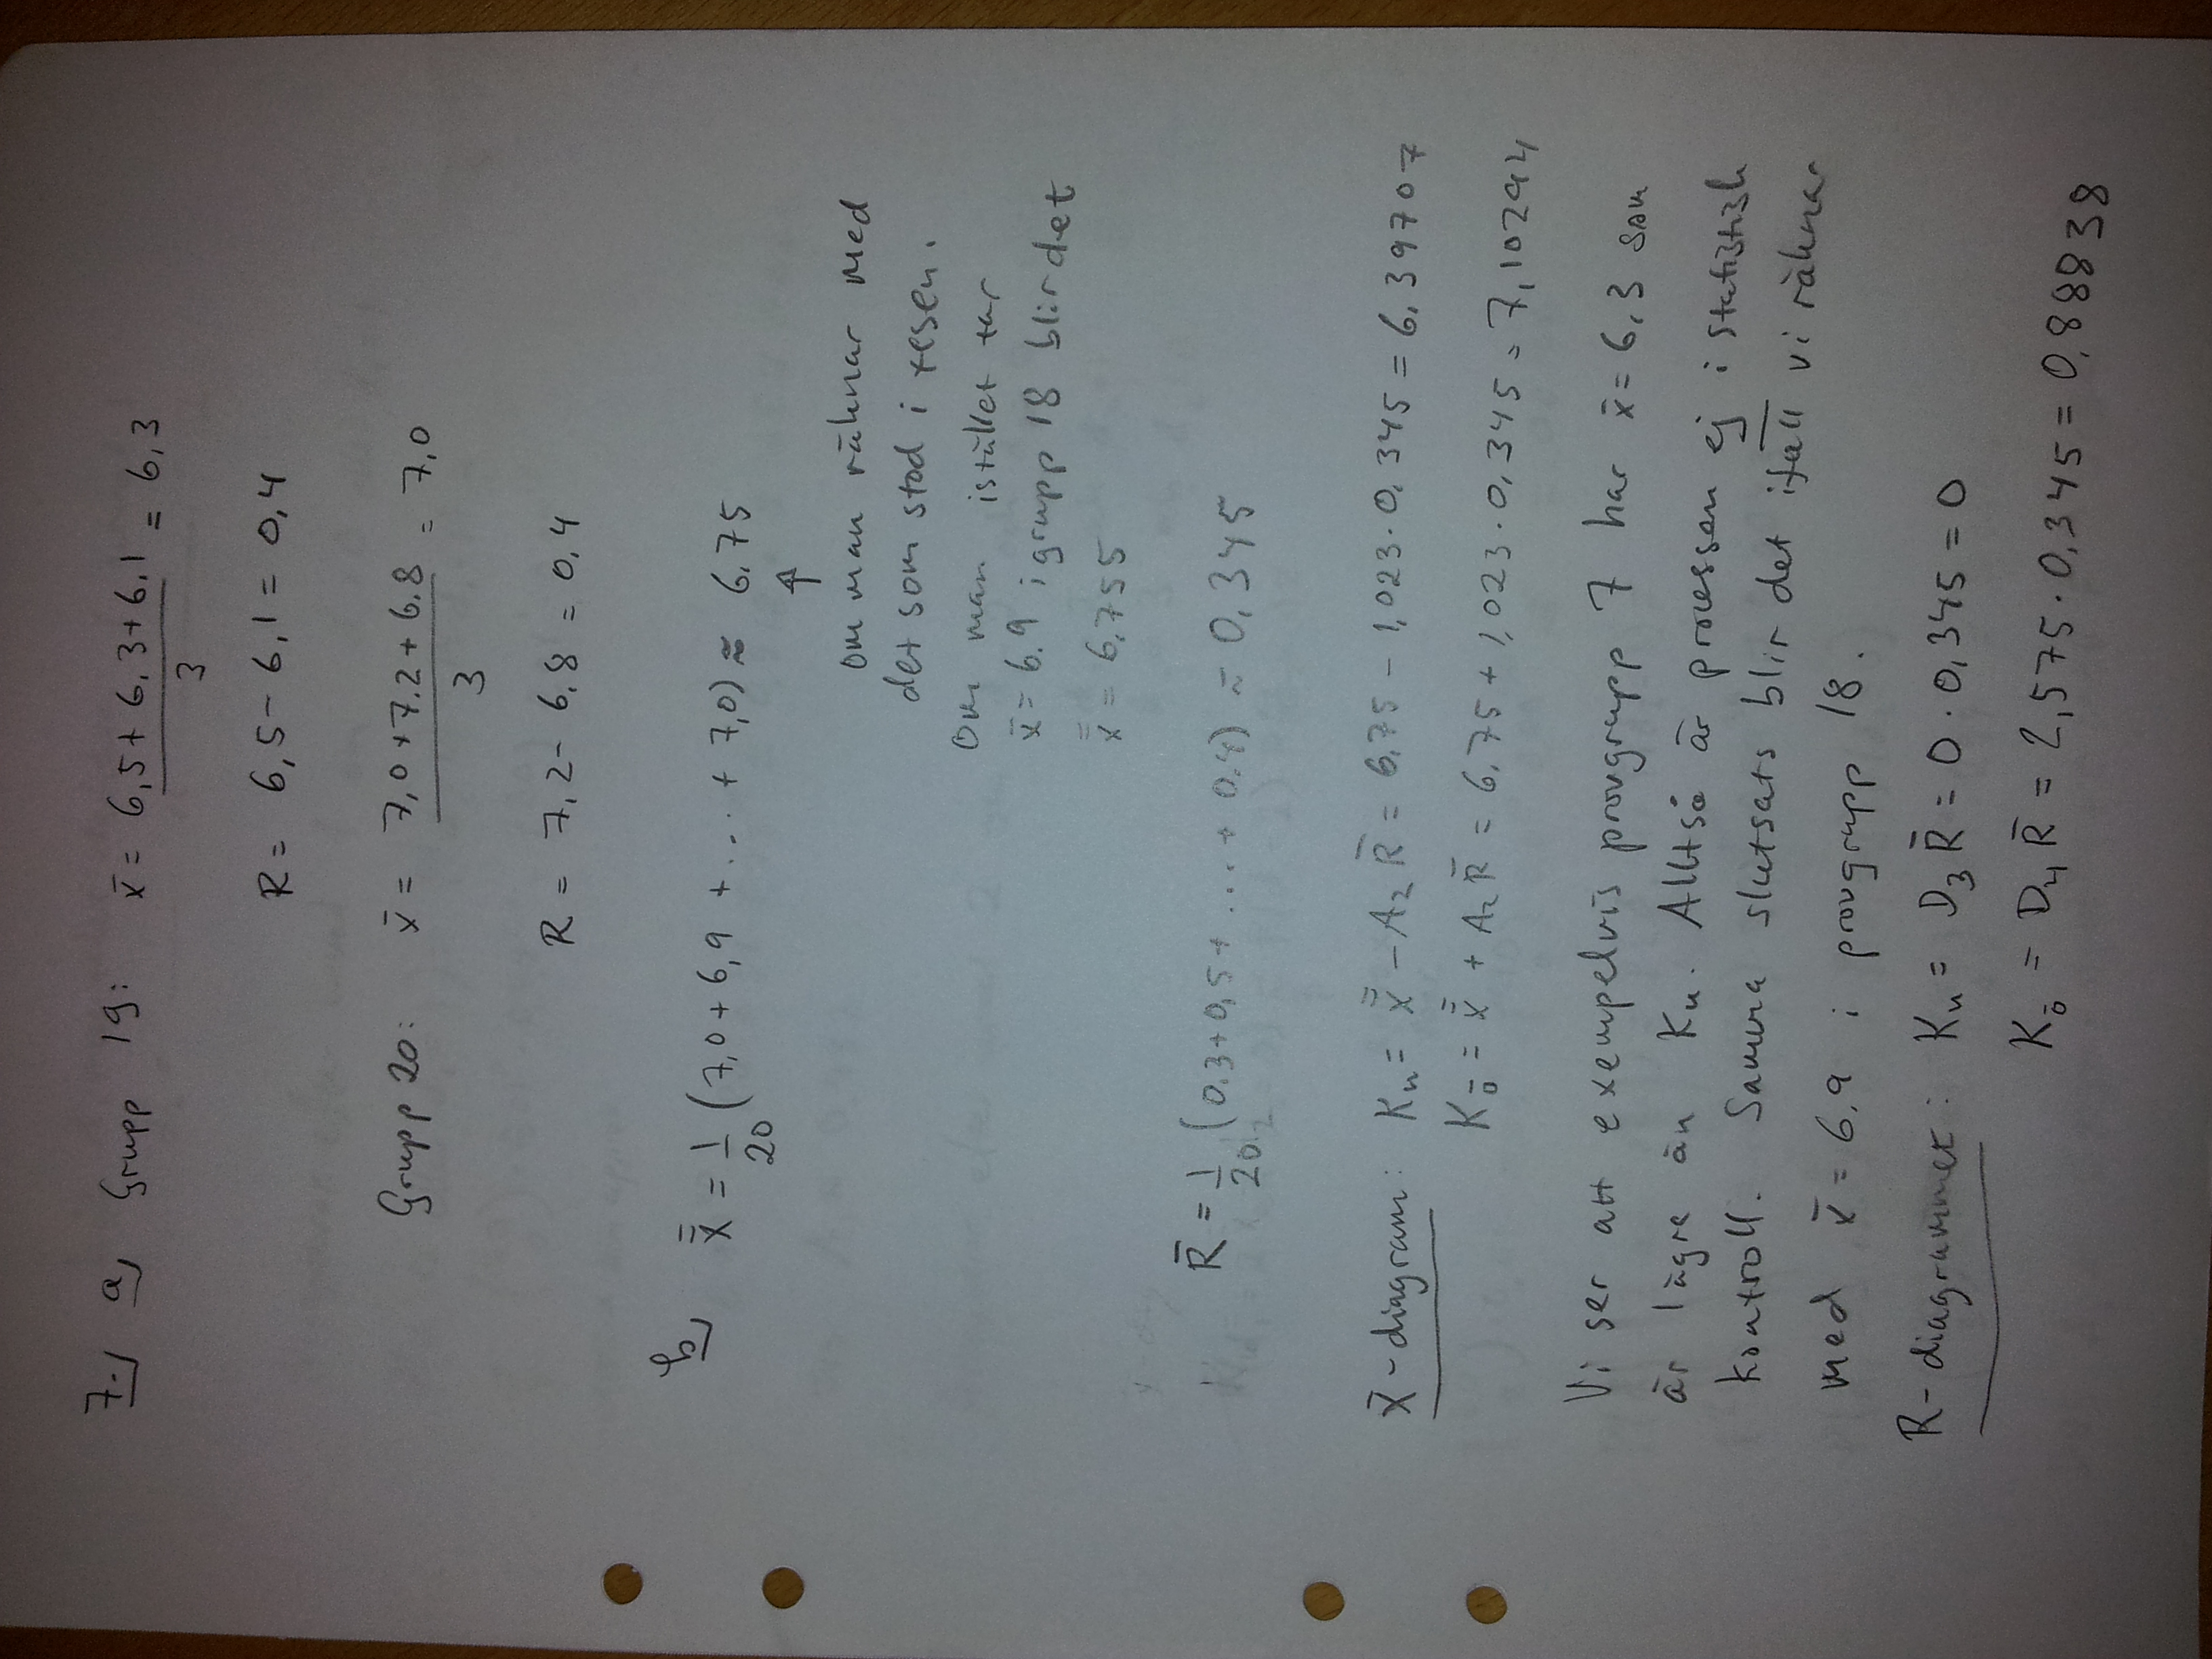 7.) a) Grupp 19: x̄ = 6,5 + 6,3 + 6,1 / 3 = 6,3
R = 6,5 - 6,1 = 0,4
Grupp 20: x̄ = 7,0 + 7,2 + 6,8 / 3 = 7,0
R = 7,2 - 6,8 = 0,4
b) x̿ = 1/20 (7,0 + 6,9 + ... + 7,0) ≈ 6,75
↑
om man räknar med
det som stod i tesen.
Om man istället tar
x̄ = 6,9 i grupp 18 blir det
x̿ = 6,755
R̄ = 1/20 (0,3 + 0,5 + ... + 0,4) ≈ 0,345
x̄-diagram: Kn = x̿ - A₂R̄ = 6,75 - 1,023 · 0,345 = 6,39707
Kö = x̿ + A₂R̄ = 6,75 + 1,023 · 0,345 = 7,10294
Vi ser att exempelvis provgrupp 7 har x̄ = 6,3 som
är lägre än Kn. Alltså är processen ej i statistisk
kontroll. Samma slutsats blir det ifall vi räknar
med x̄ = 6,9 i provgrupp 18.
R-diagrammet: Kn = D₃R̄ = 0 · 0,345 = 0
Kö = D₄R̄ = 2,575 · 0,345 = 0,88838